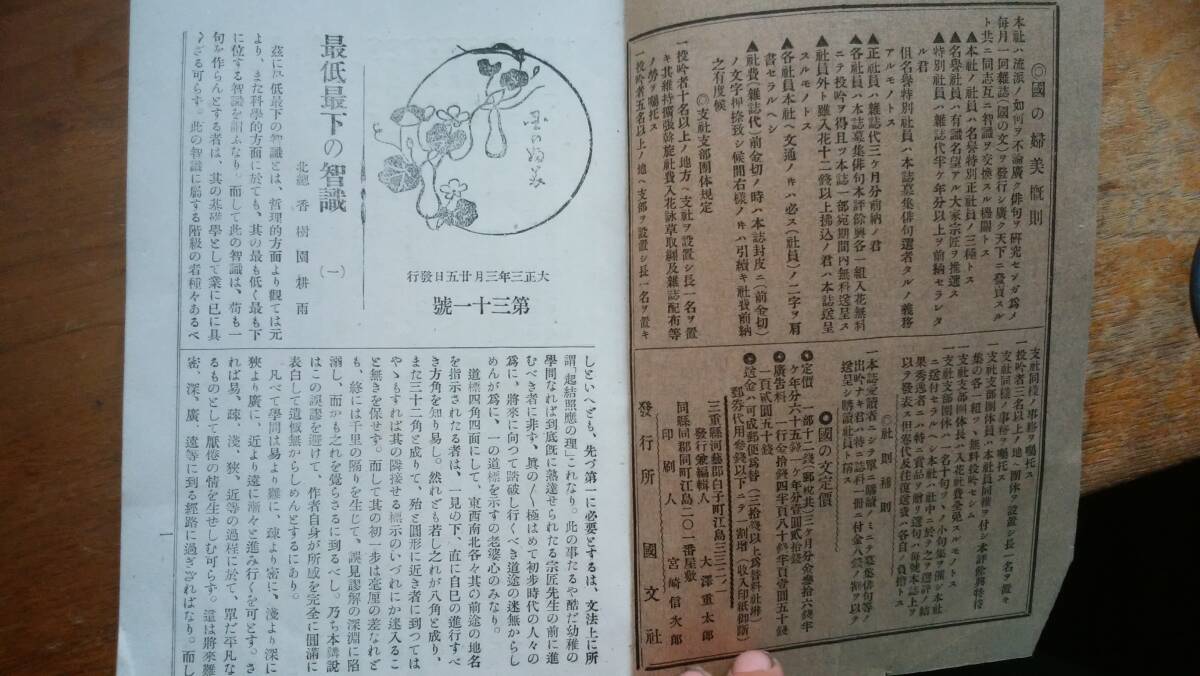 ◎國の婦美概則
本社ハ流派ノ如何ヲ不論廣ク俳句ヲ硏究セシガ爲メ
每月一回雜誌(國の文)ヲ發行シ廣ク天下ニ發賣スル
ト共ニ同志互ニ智識ヲ交換スル機關トス
▲本社ノ社員ハ名譽特別正社員ノ三種トス
▲名譽社員ハ有識名望アル大家宗匠ヲ推選ス
▲特別社員ハ雜誌代半ケ年分以上ヲ前納セラレシタ
ル君
但名譽特別社員ハ本誌募集俳句選者タルノ義務
アルモノトス
▲正社員ハ雜誌代三ケ月分前納ノ君
▲各社員ハ本誌募集俳句本評餘興各一組入花無料
ニテ投吟ヲ得且ツ本誌一部宛期間內無料送呈ス
▲社員外ト雖入花十二錢以上拂込ノ君ハ本誌送呈
スルモノトス
▲各社員本社ヘ文通ノ時ハ必ス(社員)ノ二字ヲ肩
書セラルヘシ
▲社費(雜誌代)前金切ノ時ハ本誌封皮ニ(前金切)
ノ文字押捺致シ候間右樣ノ時ハ引續キ社費前納
之有度候
◎支社支部團体規定
一投吟者十名以上ノ地方ヘ支社ヲ設置シ長一名ヲ置
キ其維持擴張斡旋社費入花詠草取纏及雜誌配布等
ノ勞ヲ囑托ス
一投吟者五名以上ノ地ヘ支部ヲ設置シ長一名ヲ置キ
支社同樣ノ事務ヲ囑托ス
一投吟者三名以上ノ地ヘ團体ヲ設置シ長一名ヲ置キ
支社同樣ノ事務ヲ囑托ス
支社支部團体員ハ本社員同權ヲ付シ本評餘興特待
集の各一組ツヽ無料投吟セシム
一支社支部團体長ハ入花社費全免スルモノトス
◎社則補則
一本誌愛讀者ニシテ單ニ購讀ノミニテ募集俳句等ノ
出吟ナキ君ハ特ニ誌料一冊ニ付金八錢ノ割ヲ以テ
送呈シ購讀社員ト稱ス
●國の文定價
定價 一部十二錢(郵稅共)三ケ月分金參拾六錢半
ケ年分六十五錢一ケ年分壹圓貳拾錢
廣告料 一行金拾錢四半頁八十錢半頁壹圓五十錢
一頁貳圓五十錢
送金ハ可成郵便爲替(三拾錢以上爲替料社辨)
郵劵代用參錢以下ニテ一割增(收入印紙御斷)
三重縣河藝郡白子町江島三三二ノ一
發行兼編輯人 大澤重太郞
同縣同郡同町江島二〇一番屋敷
印刷人 宮崎信次郞
發行所 國文社
国の婦美
大正三年三月廿五日發行
第三十一號
最低最下の智識 (一)
北總 香樹園耕雨
茲に最低最下の智識とは、哲理的方面より觀ては元
より、また科學的方面に於ても、其の最も低く最も下
に位する智識を謂ふなり。而して此の智識は、苟も一
句を作らんとする者は、其の基礎學として業に已に具
へざる可らず。此の智識に屬する階級の者種々あるべ
しといへども、先づ第一に必要とするは、文法上に所
謂「起結照應の理」これなり。此の事たるや酷だ幼稚の
學問なれば到底旣に熟達せられたる宗匠先生の前に進
むべき者に非ず、眞のく極はめて初步時代の人々の
爲に、將來に向つて踏破し行くべき道途の迷無からし
めんが爲に、一の道標を示すの老婆心のみなり。
道標四角四面にして、東西南北各々其の前途の地名
を指示されたる者は、一見の下、直に自已の進行すべ
き方角を知り易し。然れども若し之れが八角と成り、
また三十二角と成りて、殆と圓形に近き者に到つては
やゝもすれば其の隣接せる標示のいづれにか迷入るこ
と無きを保せず。而して其の初一步は毫厘の差なれど
も、終には千里の隔りを生じて、誤見謬解の深淵に陷
溺し、而かも之れを覺らざるに到るべし。乃ち本講說
はこの誤謬を避けて、作者自身が所感を完全に圓滿に
表白して遺憾無からしめんとするにあり。
凡べて學問は易より難に、疎より密に、淺より深に
狹より廣に、近より遠に漸々と進み行くを可とす。さ
れば易、疎、淺、狹、近等の過程に於て、單だ平凡な
るものとして厭倦の情を生ぜしむ可らず。這は將來難
密、深、廣、遠等に到る經路に過ぎざればなり。而し
一